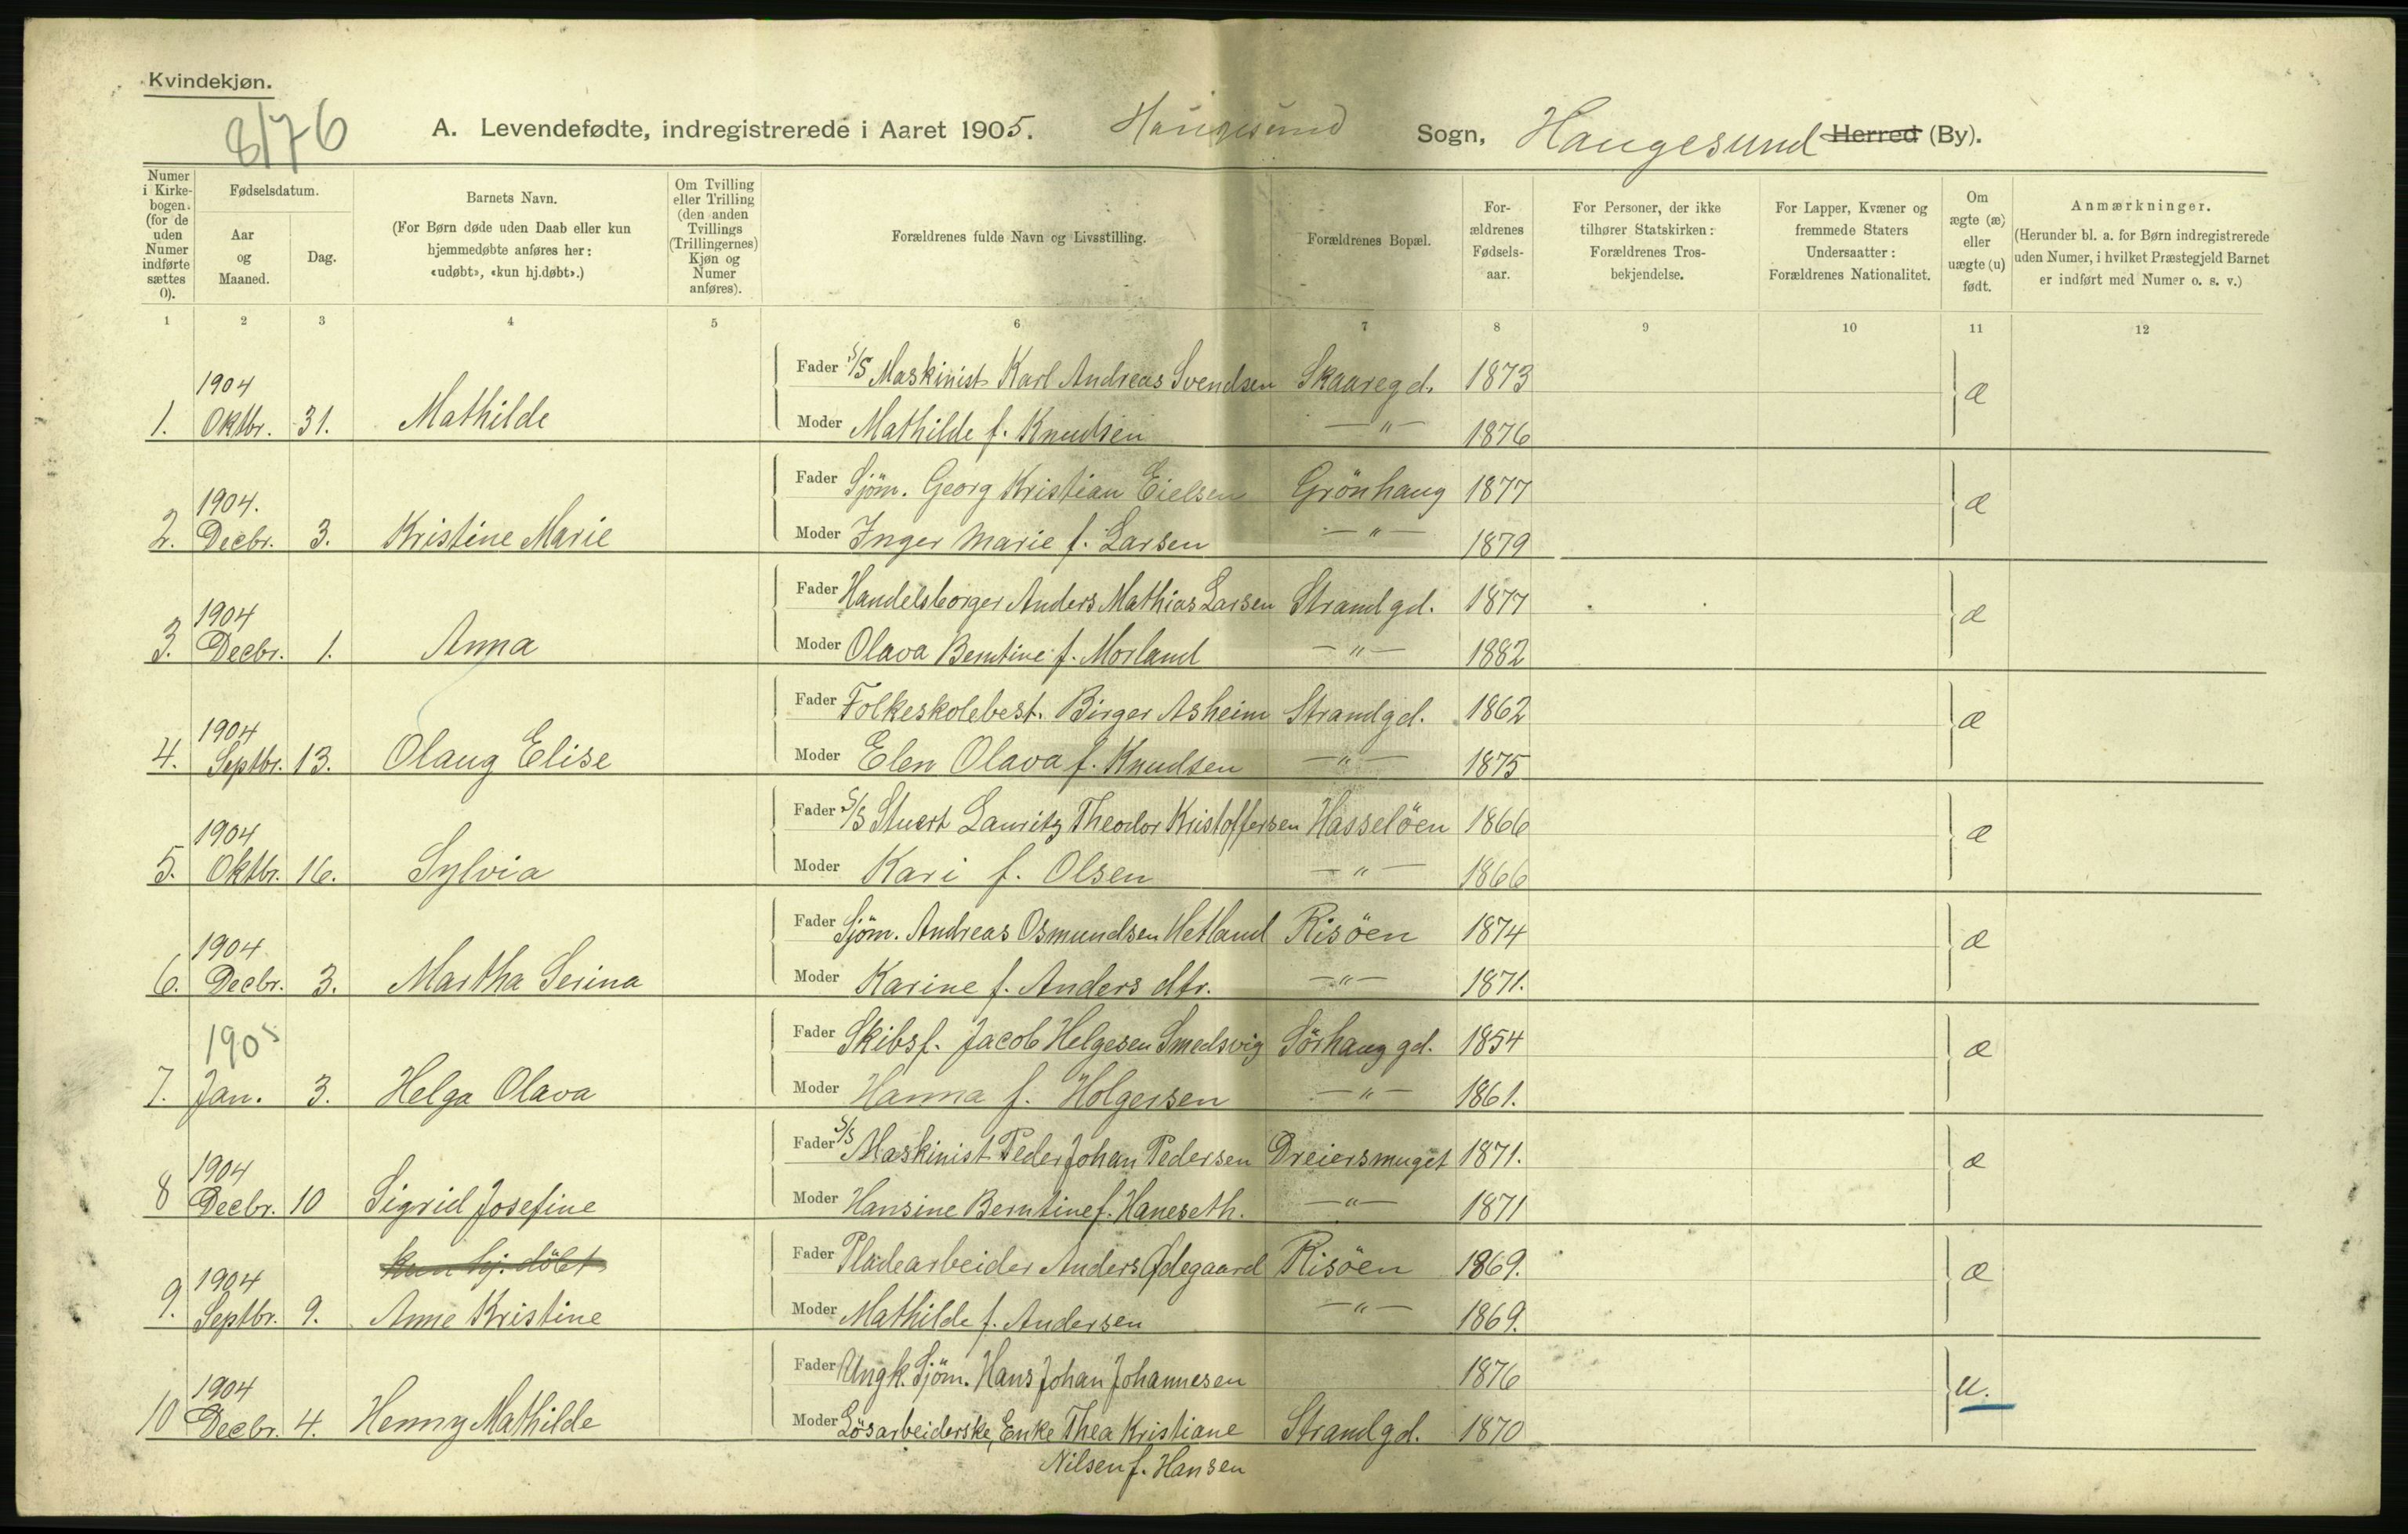 Kvindekjøn.
8/76
A. Levendefødte, indregistrerede i Aaret 1905. Haugesund Sogn, Haugesund Herred (By).
Numer i Kirke-bogen. (for de uden Numer indførte sættes 0).
Fødselsdatum.
Aar og Maaned.
Dag.
Barnets Navn.
(For Børn døde uden Daab eller kun hjemmedøbte anføres her: «udøbt», «kun hj.døbt».)
Om Tvilling eller Trilling (den anden Tvillings (Trillingernes) Kjøn og Numer anføres).
Forældrenes fulde Navn og Livsstilling.
Forældrenes Bopæl.
For-ældrenes Fødsels-aar.
For Personer, der ikke tilhører Statskirken: Forældrenes Tros-bekjendelse.
For Lapper, Kvæner og fremmede Staters Undersaatter: Forældrenes Nationalitet.
Om ægte (æ) eller uægte (u) født.
Anmærkninger.
(Herunder bl. a. for Børn indregistrerede uden Numer, i hvilket Præstegjeld Barnet er indført med Numer o. s. v.)
1 2 3 4 5 6 7 8 9 10 11 12
Fader S/S Maskinist Karl Andreas Svendsen Skaaregd. 1873
1904 æ
1. Oktbr. 31. Mathilde Moder Mathilde f. Knudsen —"— 1876
Fader Sjöm. Georg Kristian Eielsen Grönhaug 1877
1904. æ
2. Decbr. 3. Kristine Marie Moder Inger Marie f. Larsen —"— 1879
Fader Handelsborger Anders Mathias Larsen Strandgd. 1877
1904 æ
3. Decbr. 1. Anna Moder Olava Berntine f. Morland —"— 1882
Fader Folkeskolebest. Birger Asheim Strandgd. 1862
1904 æ
4. Septbr. 13. Olaug Elise Moder Elen Olava f. Knudsen —"— 1875
Fader S/S Stuert Lauritz Theodor Kristoffersen Hasselöen 1866
1904 æ
5. Oktbr. 16. Sylvia Moder Kari f. Olsen —"— 1866
Fader Sjöm. Andreas Osmundsen Hetland Risöen 1874
1904 æ
6. Decbr. 3. Martha Serina Moder Karine f. Anders dtr. —"— 1871.
Fader Skibsf. Jacob Helgesen Smedsvig Sörhauggd. 1854
1905 æ
7. Jan. 3. Helga Olava Moder Hanna f. Holgersen —"— 1861.
Fader S/S Maskinist Peder Johan Pedersen Dreiersmuget 1871.
1904 æ
8 Decbr. 10 Sigrid Josefine Moder Hansine Berntine f. Haneseth. —"— 1871
kun hj. döbt Fader Pladearbeider Anders Ødegaard Risöen 1869.
1904 æ
9. Septbr. 9. Anne Kristine Moder Mathilde f. Andersen —"— 1869.
Fader Ungk. Sjöm. Hans Johan Johannesen 1876
1904 u.
10 Decbr. 4. Henny Mathilde Moder Lösarbeiderske, Enke Thea Kristiane Strandgd. 1870
Nilsen f. Hansen